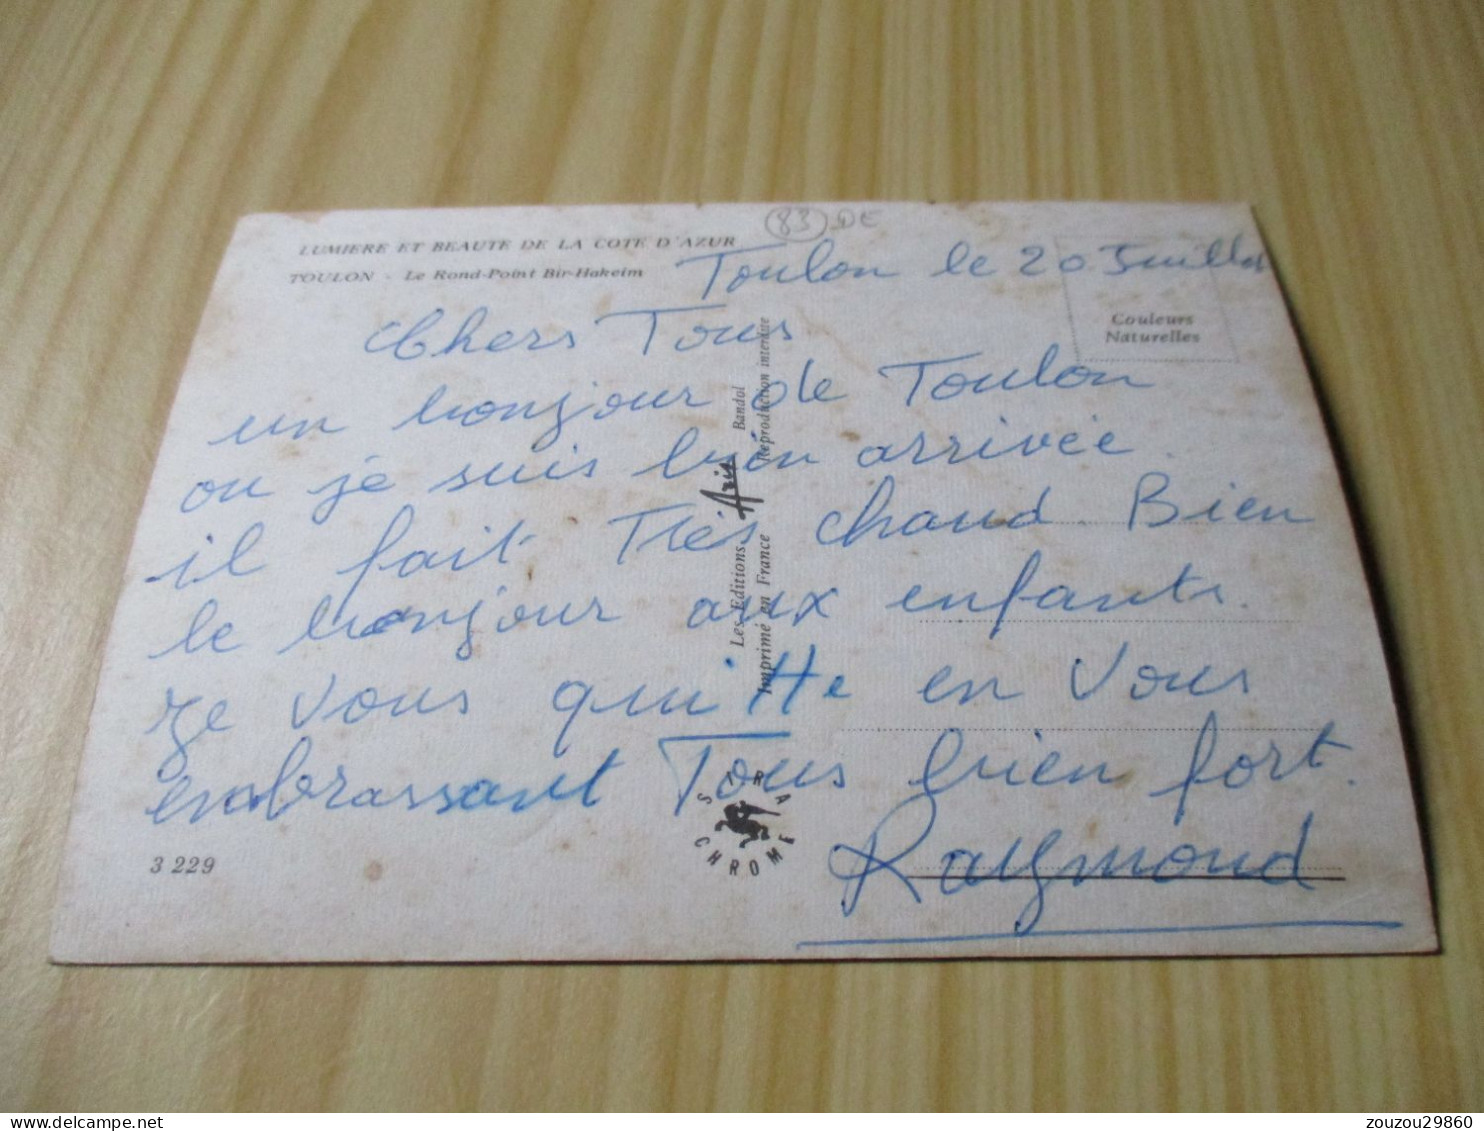 83 DE
LUMIERE ET BEAUTE DE LA COTE D'AZUR
TOULON - Le Rond-Point Bir-Hakeim
Toulon le 20 Juillet
Couleurs
Naturelles
Chers Tous
un bonjour de Toulon
ou je suis bien arrivée.
il fait Trés chaud Bien
le bonjour aux enfants.
Je vous quitte en vous
embrassant Tous bien fort.
Raymond
Les Editions Aris Bandol
Imprimé en France Reproduction interdite
STRACHROME
3 229
zouzou29860